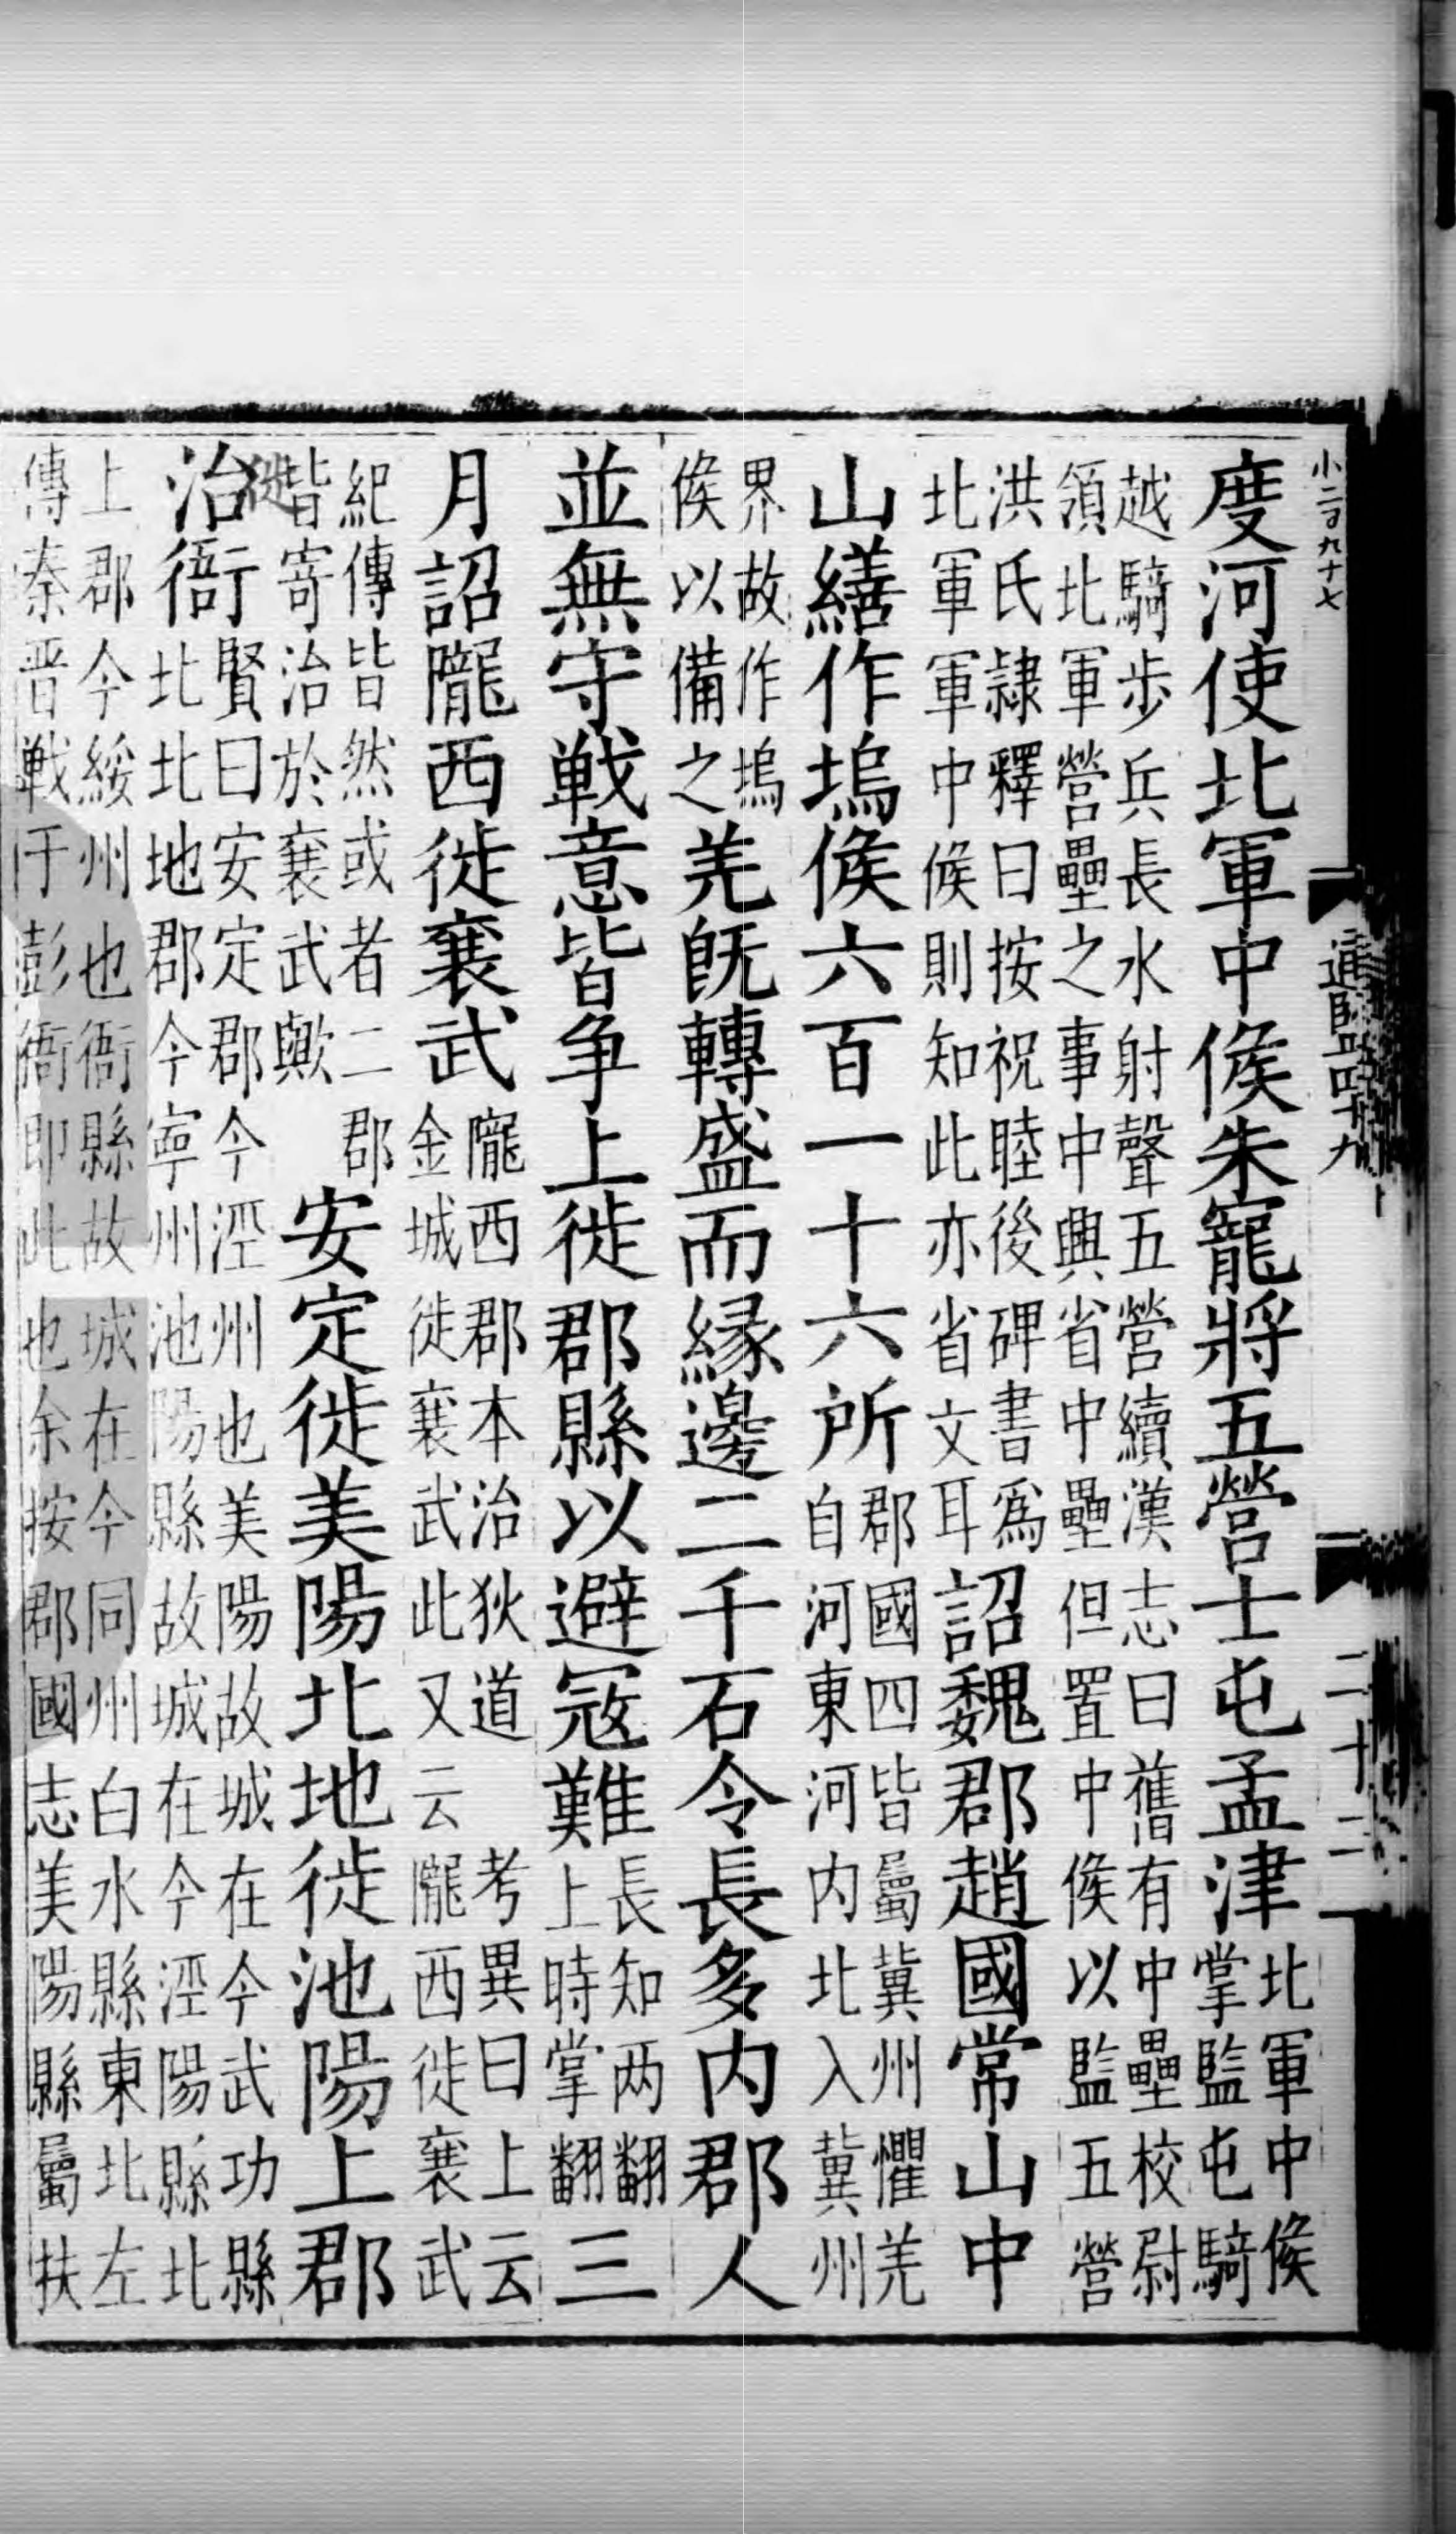 小二百九十七
通鑑四十九
二十二
度河使北軍中候朱寵將五營士屯孟津北軍中候掌監屯騎
越騎歩兵長水射聲五營續漢志曰舊有中壘校尉領北軍營壘之事中興省中壘但置中候以監五營
洪氏隷釋曰按祝睦後碑書爲北軍軍中候則知此亦省文耳詔魏郡趙國常山中
山繕作塢候六百一十六所郡國四皆屬冀州懼羌自河東河内北入冀州
界故作塢候以備之羌旣轉盛而縁邊二千石令長多内郡人
並無守戰意皆争上徙郡縣以避寇難長知两翻上時掌翻三
月詔隴西徙襄武隴西郡本治狄道考異曰上云金城徙襄武此又云隴西徙襄武
紀傳皆然或者二郡皆寄治於襄武歟安定徙美陽北地徙池陽上郡
徙
治衙賢曰安定郡今涇州也美陽故城在今武功縣北北地郡今寧州池陽縣故城在今涇陽縣北
上郡今綏州也衙縣故城在今同州白水縣東北左傳秦晋戰于彭衙即此也余按郡國志美陽縣屬扶